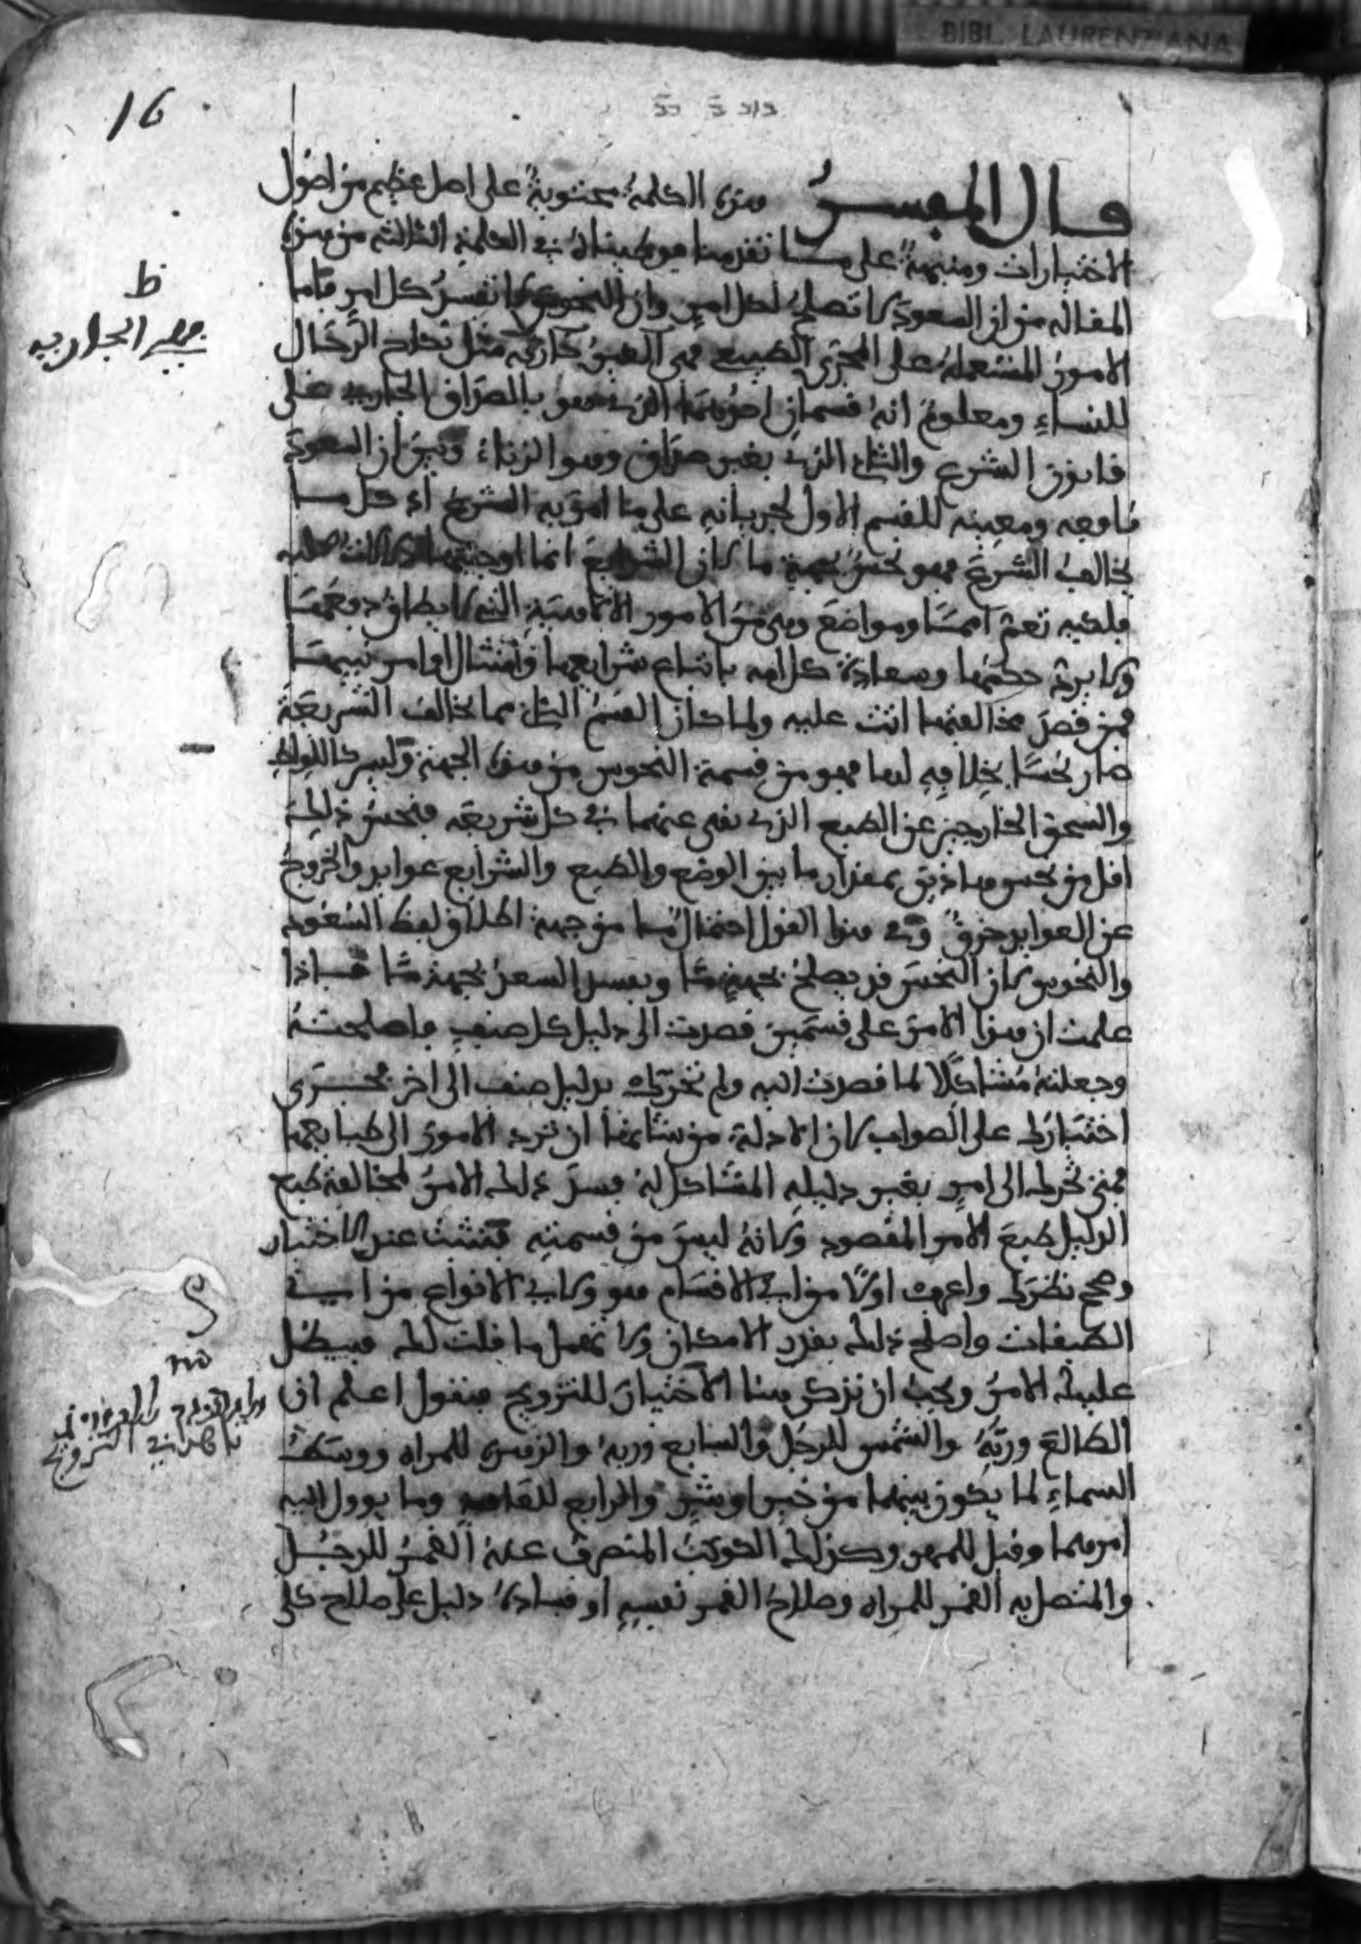 BIBL. LAURENZIANA
16
قال المفسر هذه الكلمة محتوية على اصل عظيم من اصول
الاختيارات ومنبهة على ما تقدمنا فوطيناه في الكلمة الثالثة من هذه
المقالة من ان السعود لا تصلح لكل امر وان النحوس لا تفسد كل امر فاما
الامور المشتملة على المجرى الطبيعي فهي مثل نكاح الرجال
للنساء ومعلوم انه قسمان احدهما الذي هو بالصداق الجاري على
قانون الشرع والثاني الذي بغير صداق وهو الزناء وتبين ان السعود
نافعة ومعينة للقسم الاول لجريانه على ما امر به الشرع اذ كل ما
يخالف الشرع فهو نحس بجهة ما لان الشرايع انما اوجبتها
فلكية تعم امما ومواضع وهي من الامور الالاهية التي لا يطاق دفعها
ولا يرد حكمها وسعادة كل امة باتباع شرايعها وامتثال اوامر نبيها
فمن قصد مخالفتها اثت عليه ولما كان القسم الثاني مما يخالف الشريعة
صار نحسا بخلافه لها فهو من قسمة النحوس من هذه الجهة وليس كاللواط
والسحق الخارجين عن الطبع الذي نهي عنهما في كل شريعة فنحس ذلك
اقل من نحس هاذين بمقدار ما بين الوضع والطبع والشرايع عوايد والخروج
عن العوايد خرق وفي هذا القول احتمال ما من جهة اطلاق لفظ السعود
والنحوس لان النحس قد يصلح بجهة ما ويفسد السعد بجهة ما فاذا
علمت ان هذا الامر على قسمين قصدت الى دليل كل صنف فاصلحته
وجعلته مشاكلا لما قصدت اليه ولم تحرك بدليل صنف الى اخر فجرى
اختيارك على الصواب لان الادلة من شانها ان ترد الامور الى طبايعها
فمتى تحركه الى امر بغير دليله المشاكل له فسد ذلك الامر لمخالفة طبع
الدليل طبع الامر المقصود ولانه ليس من قسمته فتثبت عند الاختيار
وصحح نظرك واعرف اولا من اي الاقسام هو ولاي الانواع من اي
الطبقات واصلح ذلك بقدر الامكان ولا تهمل ما قلت لك فيبطل
عليك الامر ويجب ان نذكر هنا الاختيار للتزويج فنقول اعلم ان
الطالع وربه والشمس للرجل والسابع وربه والزهرة للمراة ووسط
السماء لما يكون بينهما من خير او شر والرابع للعاقبة وما يوول اليه
امرهما وقيل للمهر وكذلك الكوكب المنصرف عنه القمر للرجل
والمتصل به القمر للمراة وصلاح القمر نفسه او فساده دليل على صلاح كل
ظ
الجارية
no